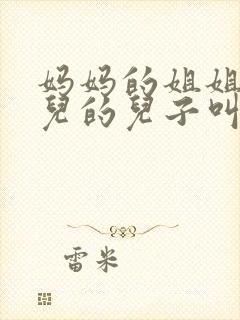 妈妈的姐姐
兒的兒子叫
雷米